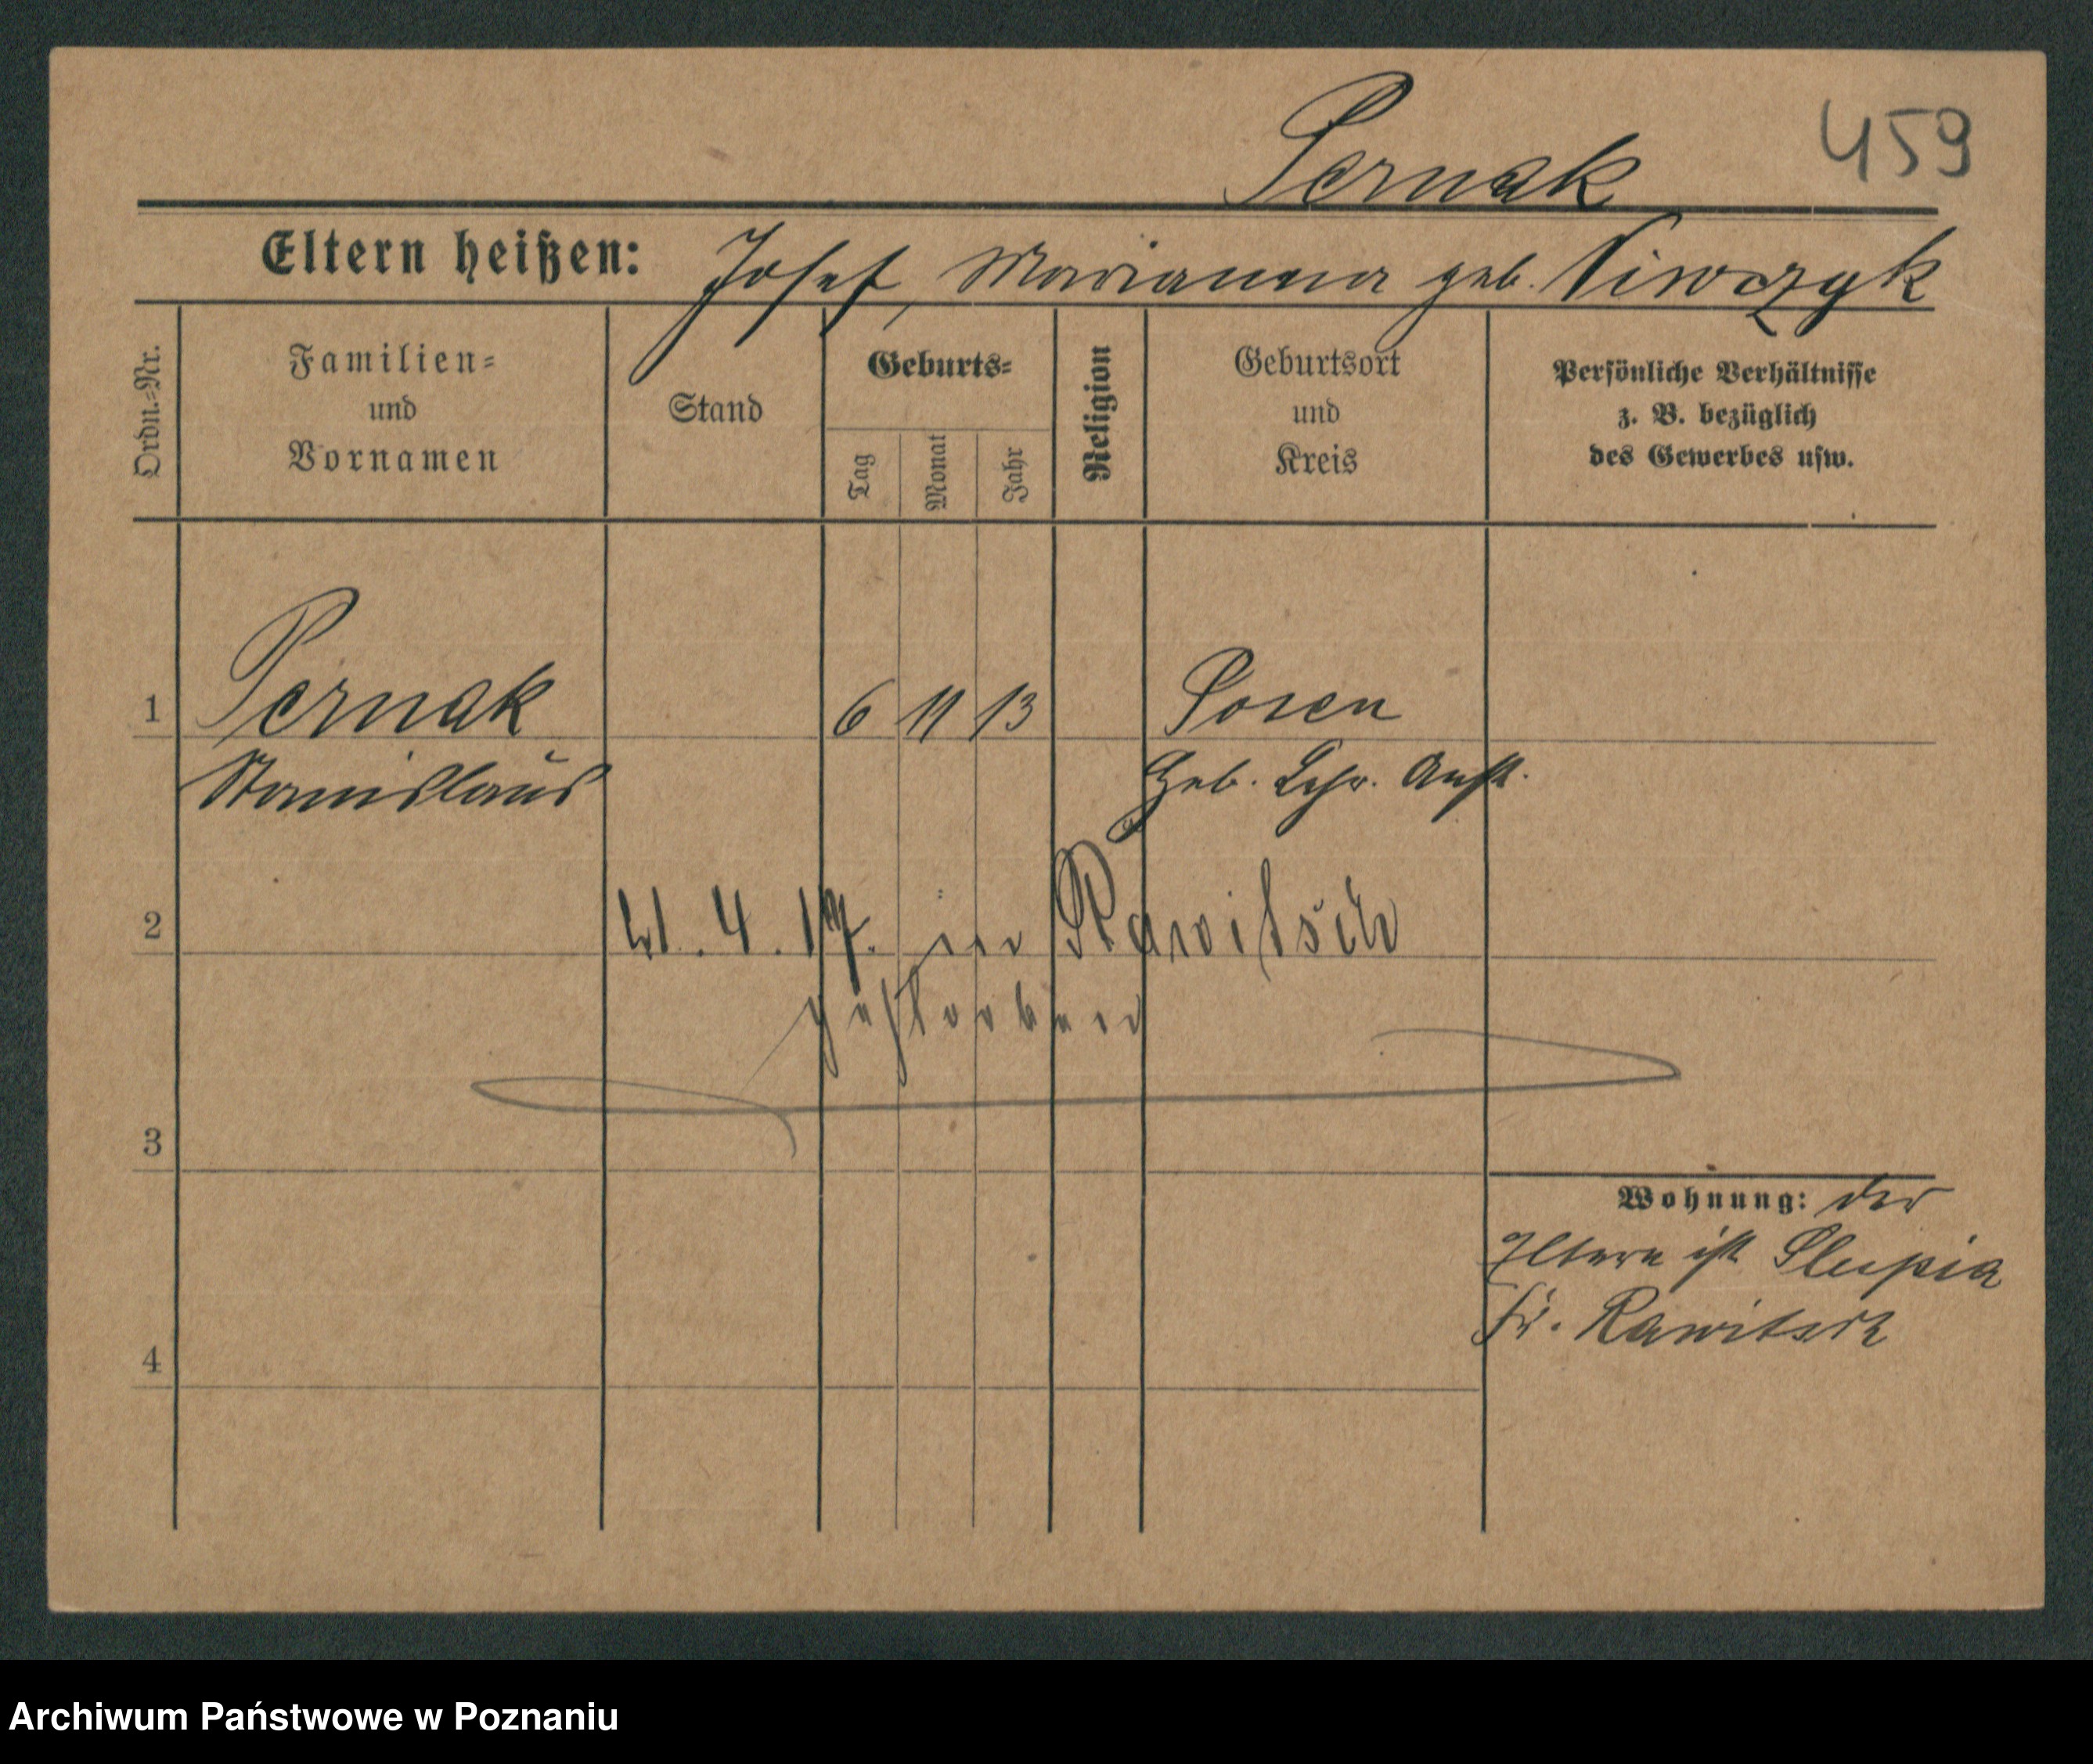 Pernak
459
Eltern heißen: Josef, Marianna geb.
Ordn.-Nr.
Familien-
und
Vornamen
Stand
Geburts-
Tag
Monat
Jahr
Religion
Geburtsort
und
Kreis
Persönliche Verhältnisse
z. B. bezüglich
des Gewerbes usw.
1 Pernak 6 11 13 Posen
Stanislaus Heb. Lehr. Anst.
2 4. 17. in Rawitsch
gestorben
3
Wohnung: der
Eltern ist Slupia
Kr. Rawitsch
4
Archiwum Państwowe w Poznaniu